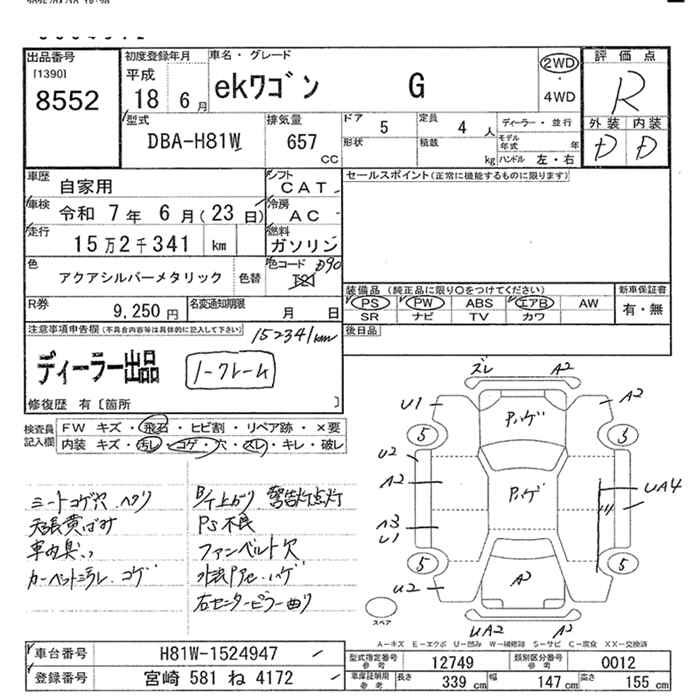 出品番号
[1390]
8552
初度登録年月
平成
18 6月
車名・グレード
ekワゴン G
2WD
4WD
評価点
R
外装 内装
D D
型式
DBA-H81W
排気量
657
CC
ドア
5
定員
4 人
形状
積載
kg
ディーラー・並行
モデル年式 年
ハンドル 左・右
車歴
自家用
シフト
CAT
車検
令和 7年 6月(23日)
冷房
AC
走行
15万2千341 km
燃料
ガソリン
色
アクアシルバーメタリック
色替
色コード
D90
R券
9,250円
名変通知期限
月 日
セールスポイント(正常に機能するものに限ります)
装備品(純正品に限り○をつけてください)
PS PW ABS エアB AW
SR ナビ TV カワ
新車保証書
有・無
後日品
注意事項申告欄(不具合内容等は具体的に記入して下さい)
152341km
ディーラー出品
ノークレーム
修復歴 有[箇所 ]
検査員記入欄
FW キズ・飛石・ヒビ割・リペア跡・×要
内装 キズ・汚レ・コゲ・穴・スレ・キレ・破レ
シートコゲ穴 ヘタリ
天張黄ばみ
車内臭い
カーペットシミ スレ コゲ
下上がり 警告灯点灯
PS不良
ファンベルト欠
ハゲ
右センターピラー曲り
ズレ A2
U1
A2
Pハゲ
5
5
U2
A2
Pハゲ
UA4
A3
U1
5
5
U2
A2
UA2
A2
スペア
A－キズ E－エクボ U－凹み W－補修跡 S－サビ C－腐食 XX－交換済
車台番号
H81W-1524947
登録番号
宮崎 581 ね 4172
型式指定番号
参考
12749
類別区分番号
参考
0012
車庫証明用
参考
長さ
339 cm
幅
147 cm
高さ
155 cm